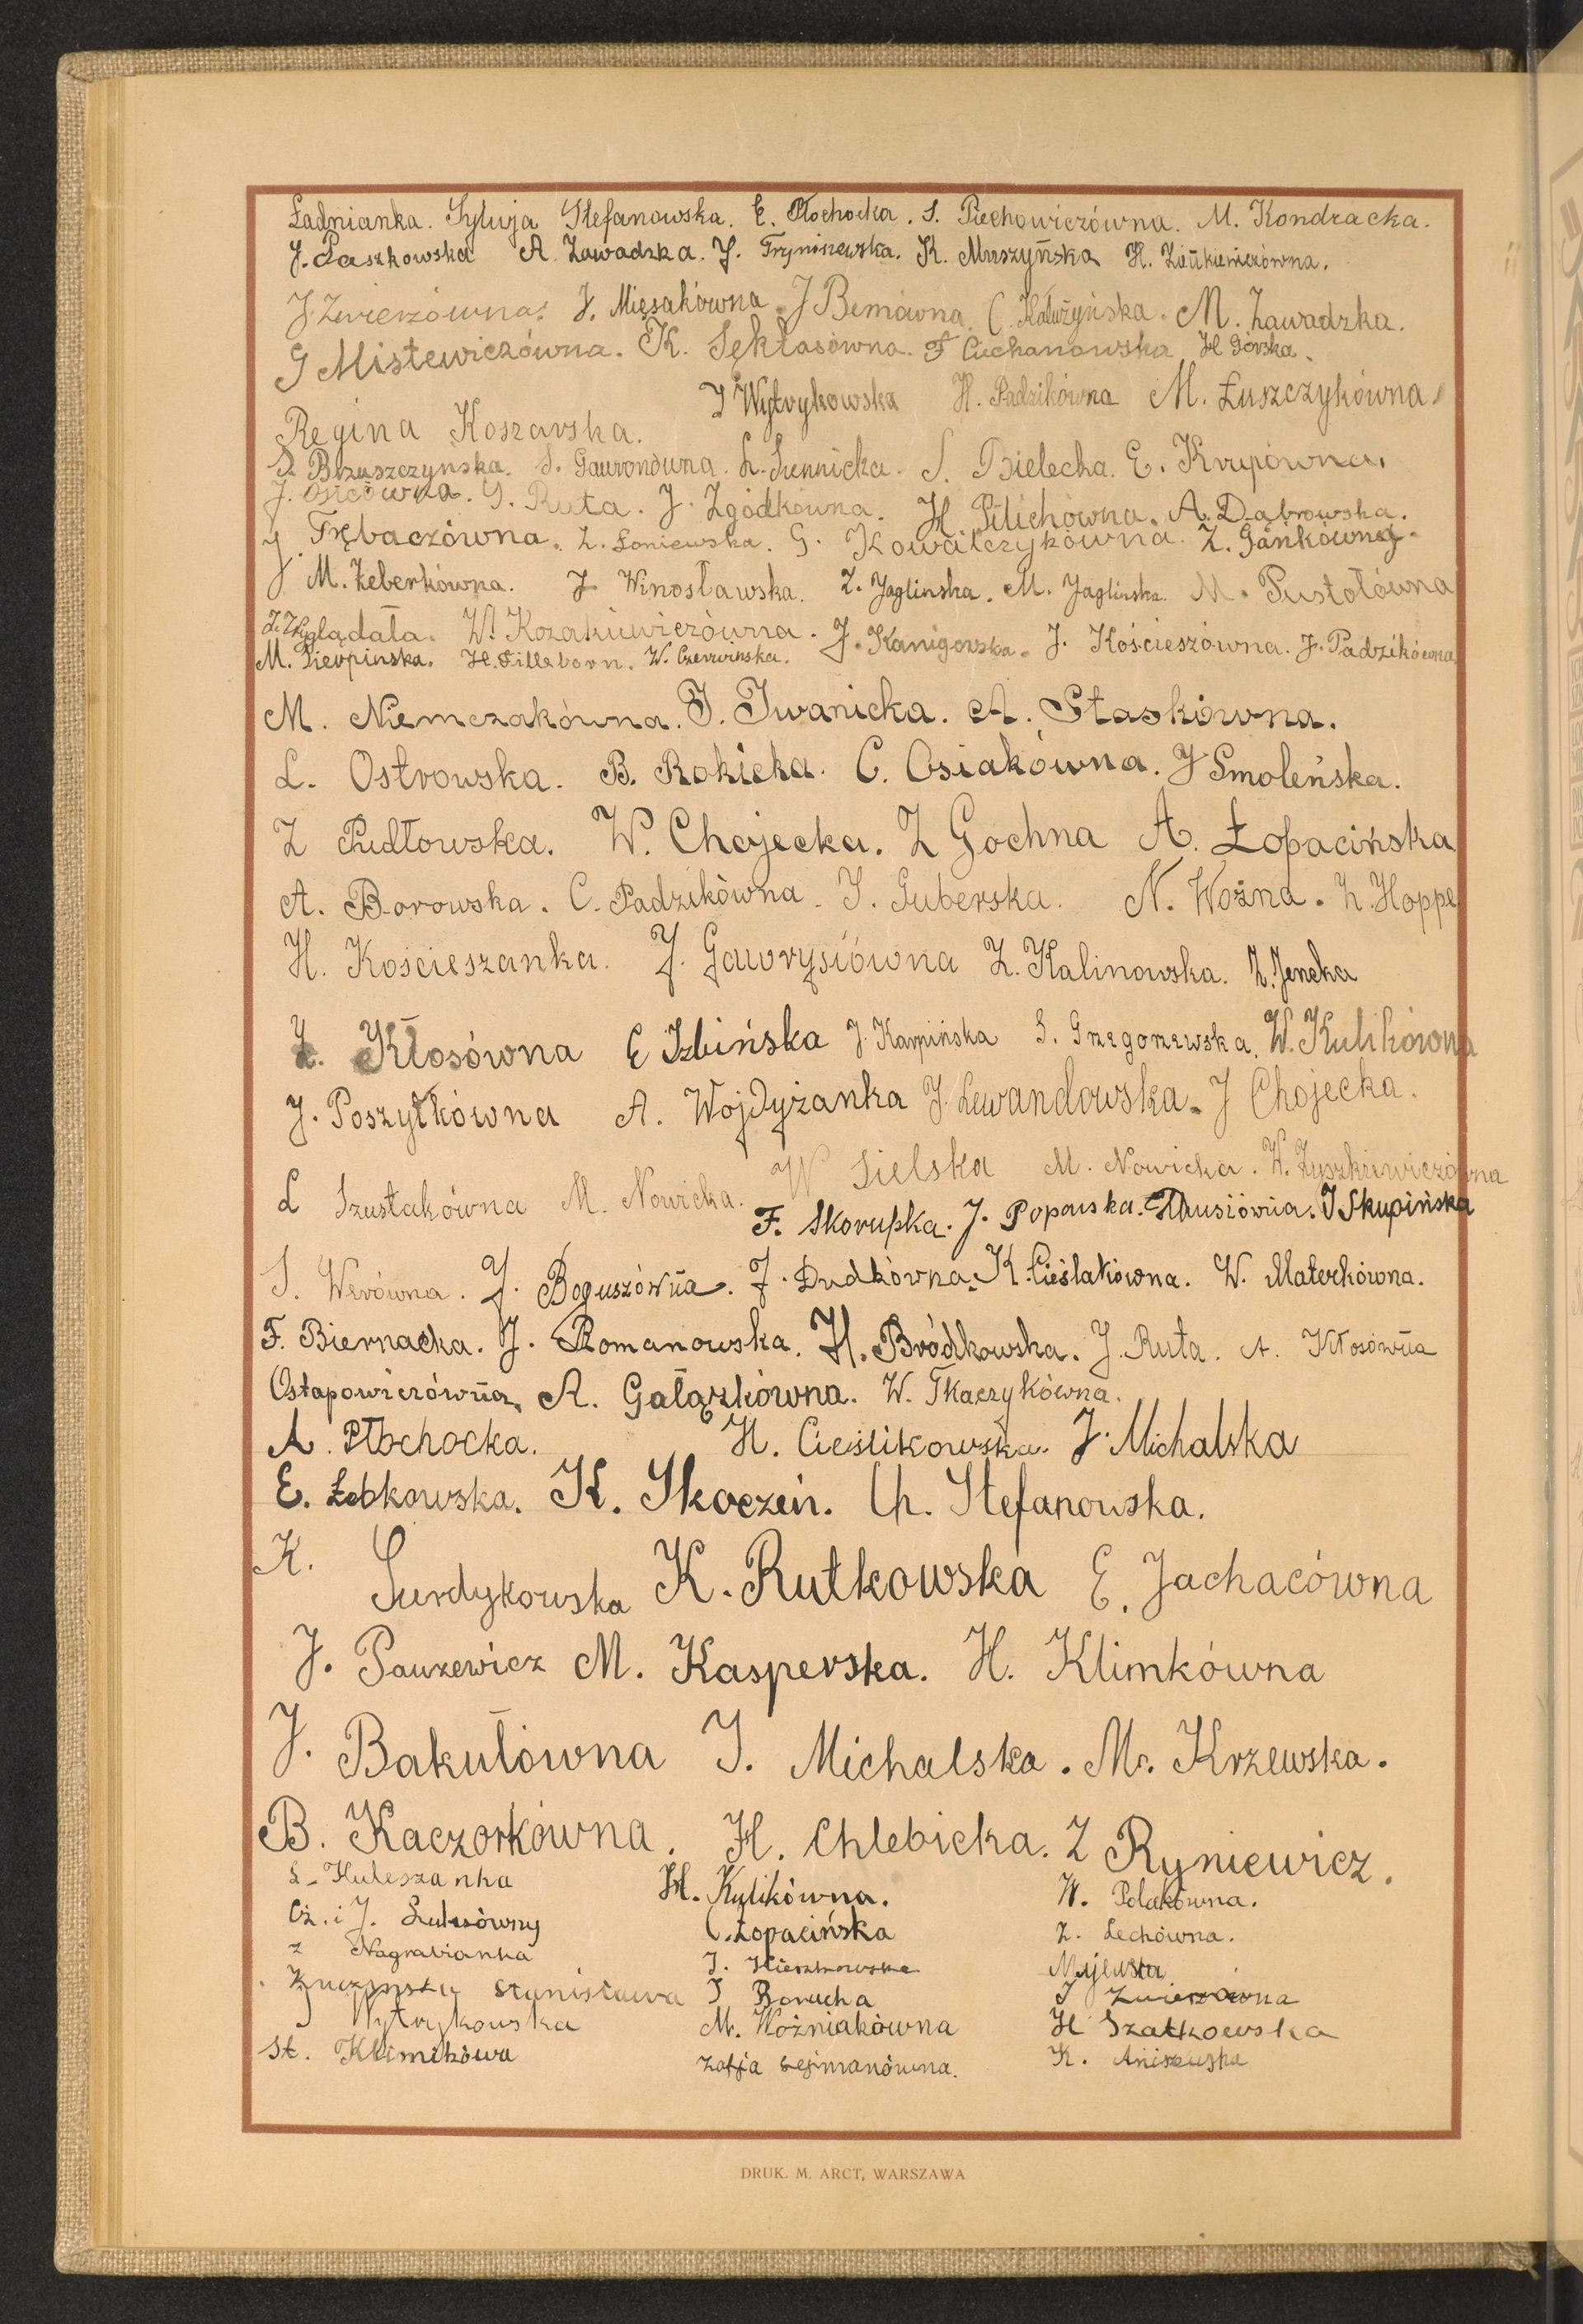 Ładnianka. Sylwja Stefanowska. E. Płochocka. S. Piechowiczówna. M. Kondracka.
J. Paszkowska A. Zawadzka. J. Tryniszewska. K. Muszyńska H.
J. Zwierzówna. J. Mięsakówna. J Bemówna. C. Kałużyńska. M. Zawadzka.
G Mistewiczówna. K. Sęktasówna. F Ciechanowska H Górska.
J Wytrykowska H. Padzikówna M. Łuszczykówna
Regina Koszarska.
S. Brzuszczyńska. S. Gawronówna. L. Siennicka. S. Bielecka. E. Krupówna.
J. Osicówna. G. Ruta. J. Zgódkówna. H. Pilichówna. A. Dąbrowska.
J Trębaczówna. Z. Łoniewska. G. Kowalczykówna. Z. Gańkówna.
M. Zeberkówna. J Winosławska. Z. Jaglinska. M. Jaglinska. M. Pustołówna
W. Kozakiewiczówna. J. Kanigowska. J. Kościeszówna. J. Padzikówna.
M. Sierpinska. H. Filleborn. W. Czerwinska.
M. Niemczakówna. J. Iwanicka. A. Staskówna.
L. Ostrowska. B. Rokicka. C. Osiakówna. J Smoleńska.
Z Pudłowska. W. Chojecka. Z Gochna A. Łopacińska
A. Borowska. C. Padzikówna. J. Guberska. N. Woźna. Z. Hoppe
H. Kościeszanka. J. Gawrysiówna Z. Kalinowska. Z. Jencka
J. Kłosówna E Izbińska J. Karpińska S. Grzegorzewska. W. Kulikówna
J. Poszytkówna A. Wojdyżanka J. Lewandowska. J Chojecka.
W Sielska M. Nowicka. W. Zyszkiewiczówna
L Szustakówna M. Nowicka.
F. Skorupka. J. Popowska. J Skupińska
S. Werówna. J. Boguszówna. J. Dudkówna. K. Cieślakówna. W. Materkówna.
F. Biernacka. J. Romanowska. H. Bródkowska. J. Ruta. A. Kłosówna
Ostapowiczówna. A. Gałązkówna. W. Tkaczykówna.
A. Płochocka. H. Cieślikowska. J. Michalska
E. Łebkowska. K. Skoczeń. Ch. Stefanowska.
K. Surdykowska K. Rutkowska E. Jachacówna
J. Pauzewicz M. Kasperska. H. Klimkówna
J. Bakułówna J. Michalska. M. Krzewska.
B. Kaczorkówna. H. Chlebicka. Z Ryniewicz.
L. Kuleszanka H. Kulikówna. W. Polakówna.
Cz. i J. C. Łopacińska Z. Lechówna.
Z Nagrabianka J. Majewska
Stanisława J Borucha J Zwierzówna
J Wytrykowska M. Woźniakówna H Szatkowska
St. Klimikówa Zofja Sejmanówna. K. Aniszewska
DRUK. M. ARCT, WARSZAWA